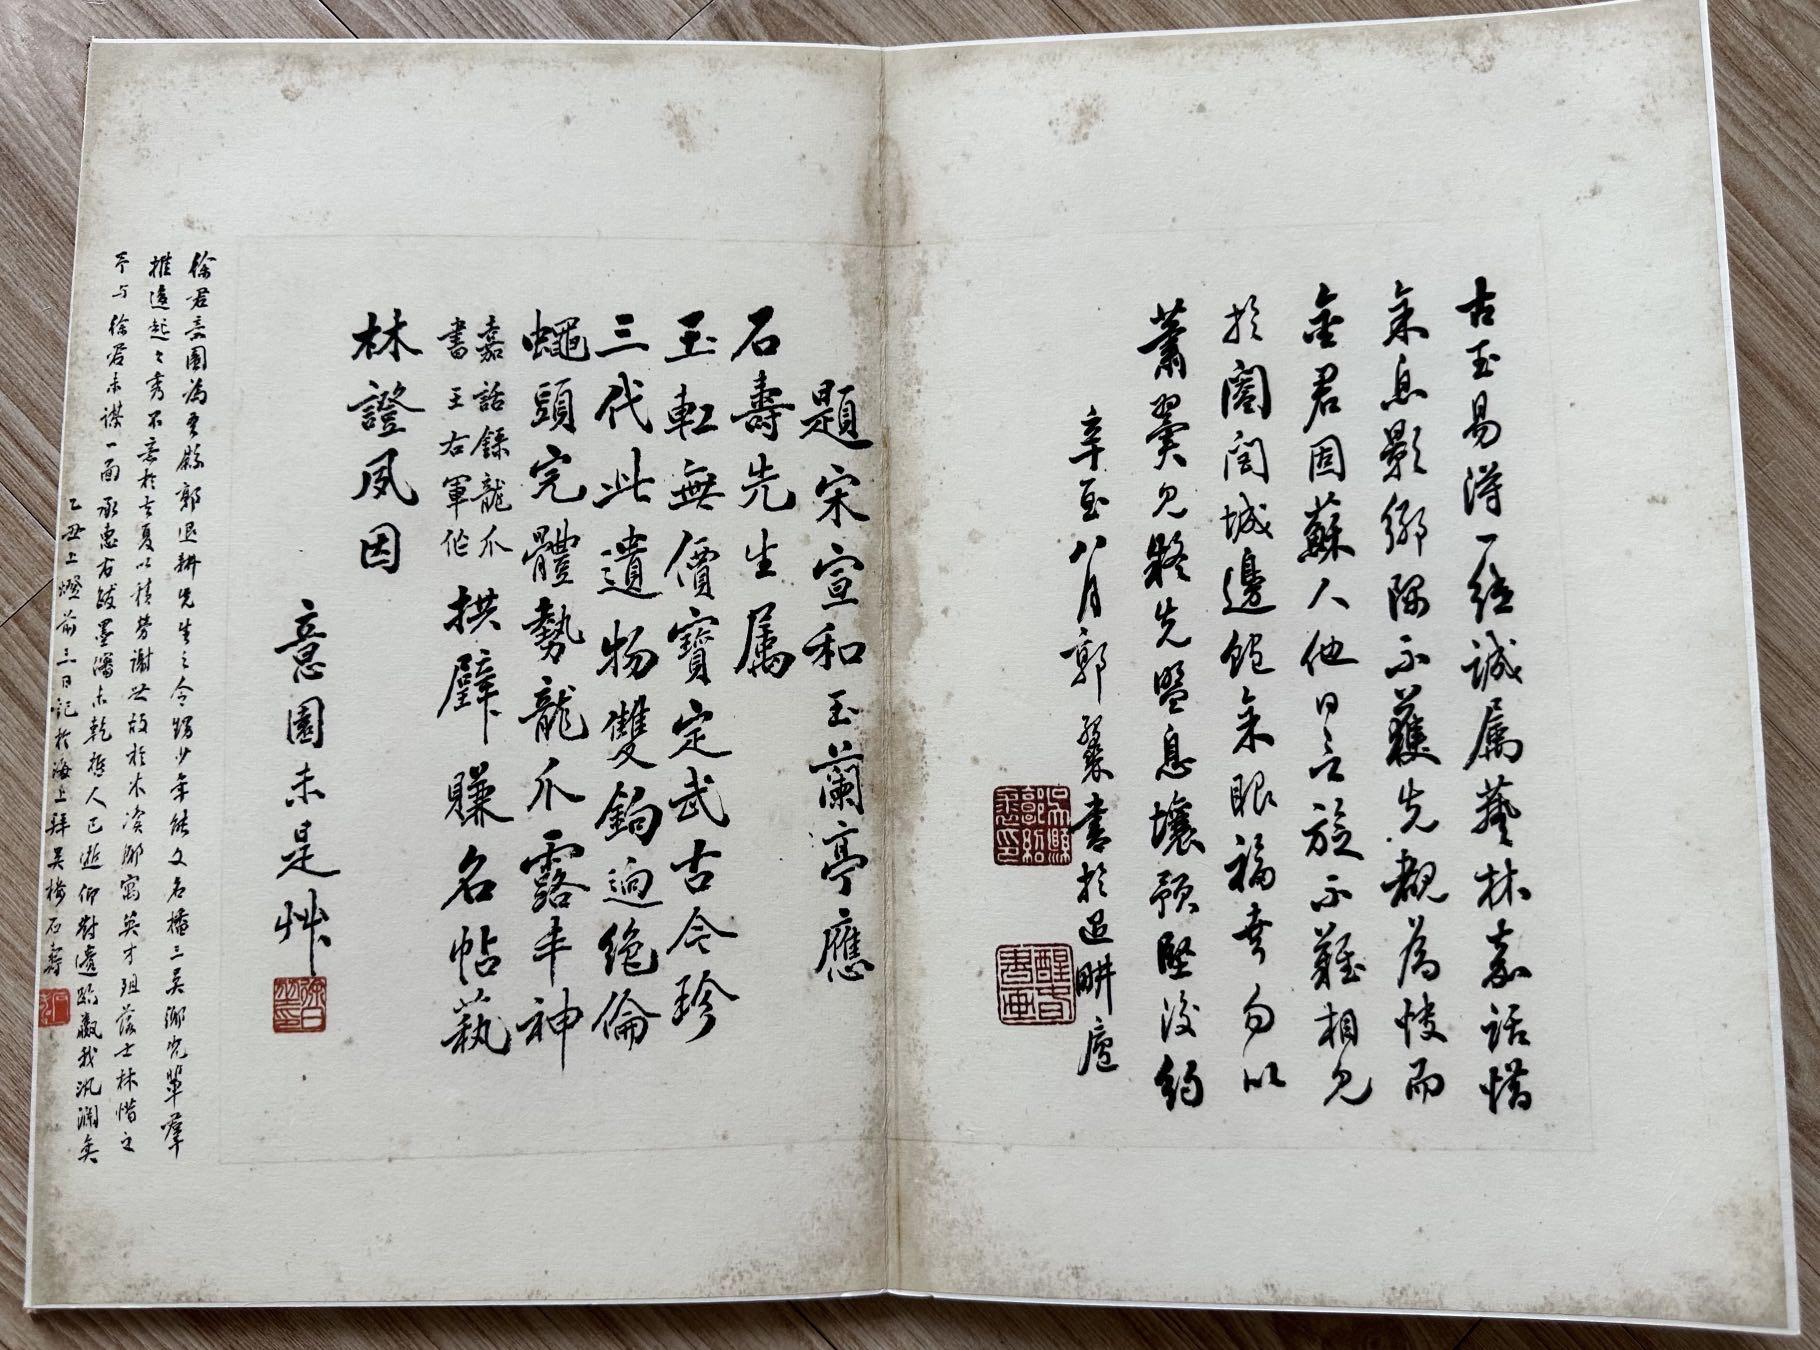 古玉易得一經誠属藝林嘉話惜
余息影鄉隅不獲先覩為悵而
金君固蘇人他日言旋不難相見
於闔閭城邊飽余眼福幸勿以
蕭翼見疑先盟息壤預堅後約
辛酉八月郭襄書於退畊廬
題宋宣和玉蘭亭應
石壽先生属
玉軐無價寶定武古今珍
三代此遺物雙鉤迥絶倫
蠅頭完體勢龍爪露丰神
嘉話錄龍爪
書王右軍作
拱璧賺名帖蓺
林證夙因
意園未是艸
徐君意園為吾縣郭退耕先生之令甥少年能文名播三吴鄉先輩群
推後起之秀不意於去夏以積勞謝世故於木瀆鄉寓英才殂落士林惜之
予与徐君未謀一面承惠右跋墨瀋未乾哲人已逝仰對遺跡感我汍瀾矣
乙丑上燈前三日記於海上拜吴楼石壽